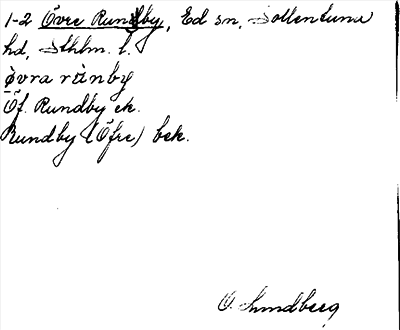 1-2 Övre Rundby, Ed sn, Sollentuna
hd, Sthlm. l.
òvra rùnby
Öf. Rundby ek.
Rundby (Öfre) bek.
O. Lundberg